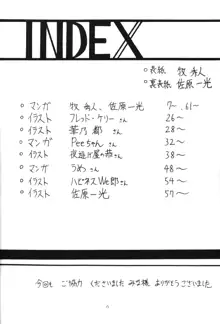 INDEX
○表紙 牧 秀人
○裏表紙 佐原 一光
○マンガ 牧 秀人、佐原 一光 7〜, 61〜
○イラスト フレッド・ケリーさん 26〜
○イラスト 筆乃 都さん 28〜
○マンガ Peeちゃん 32〜
○イラスト さん 38〜
○マンガ うめさん 48〜
○イラスト ハピネスWe郎さん 54〜
○イラスト 佐原 一光 57〜
ご協力 くださいました みな様、ありがとう ございました